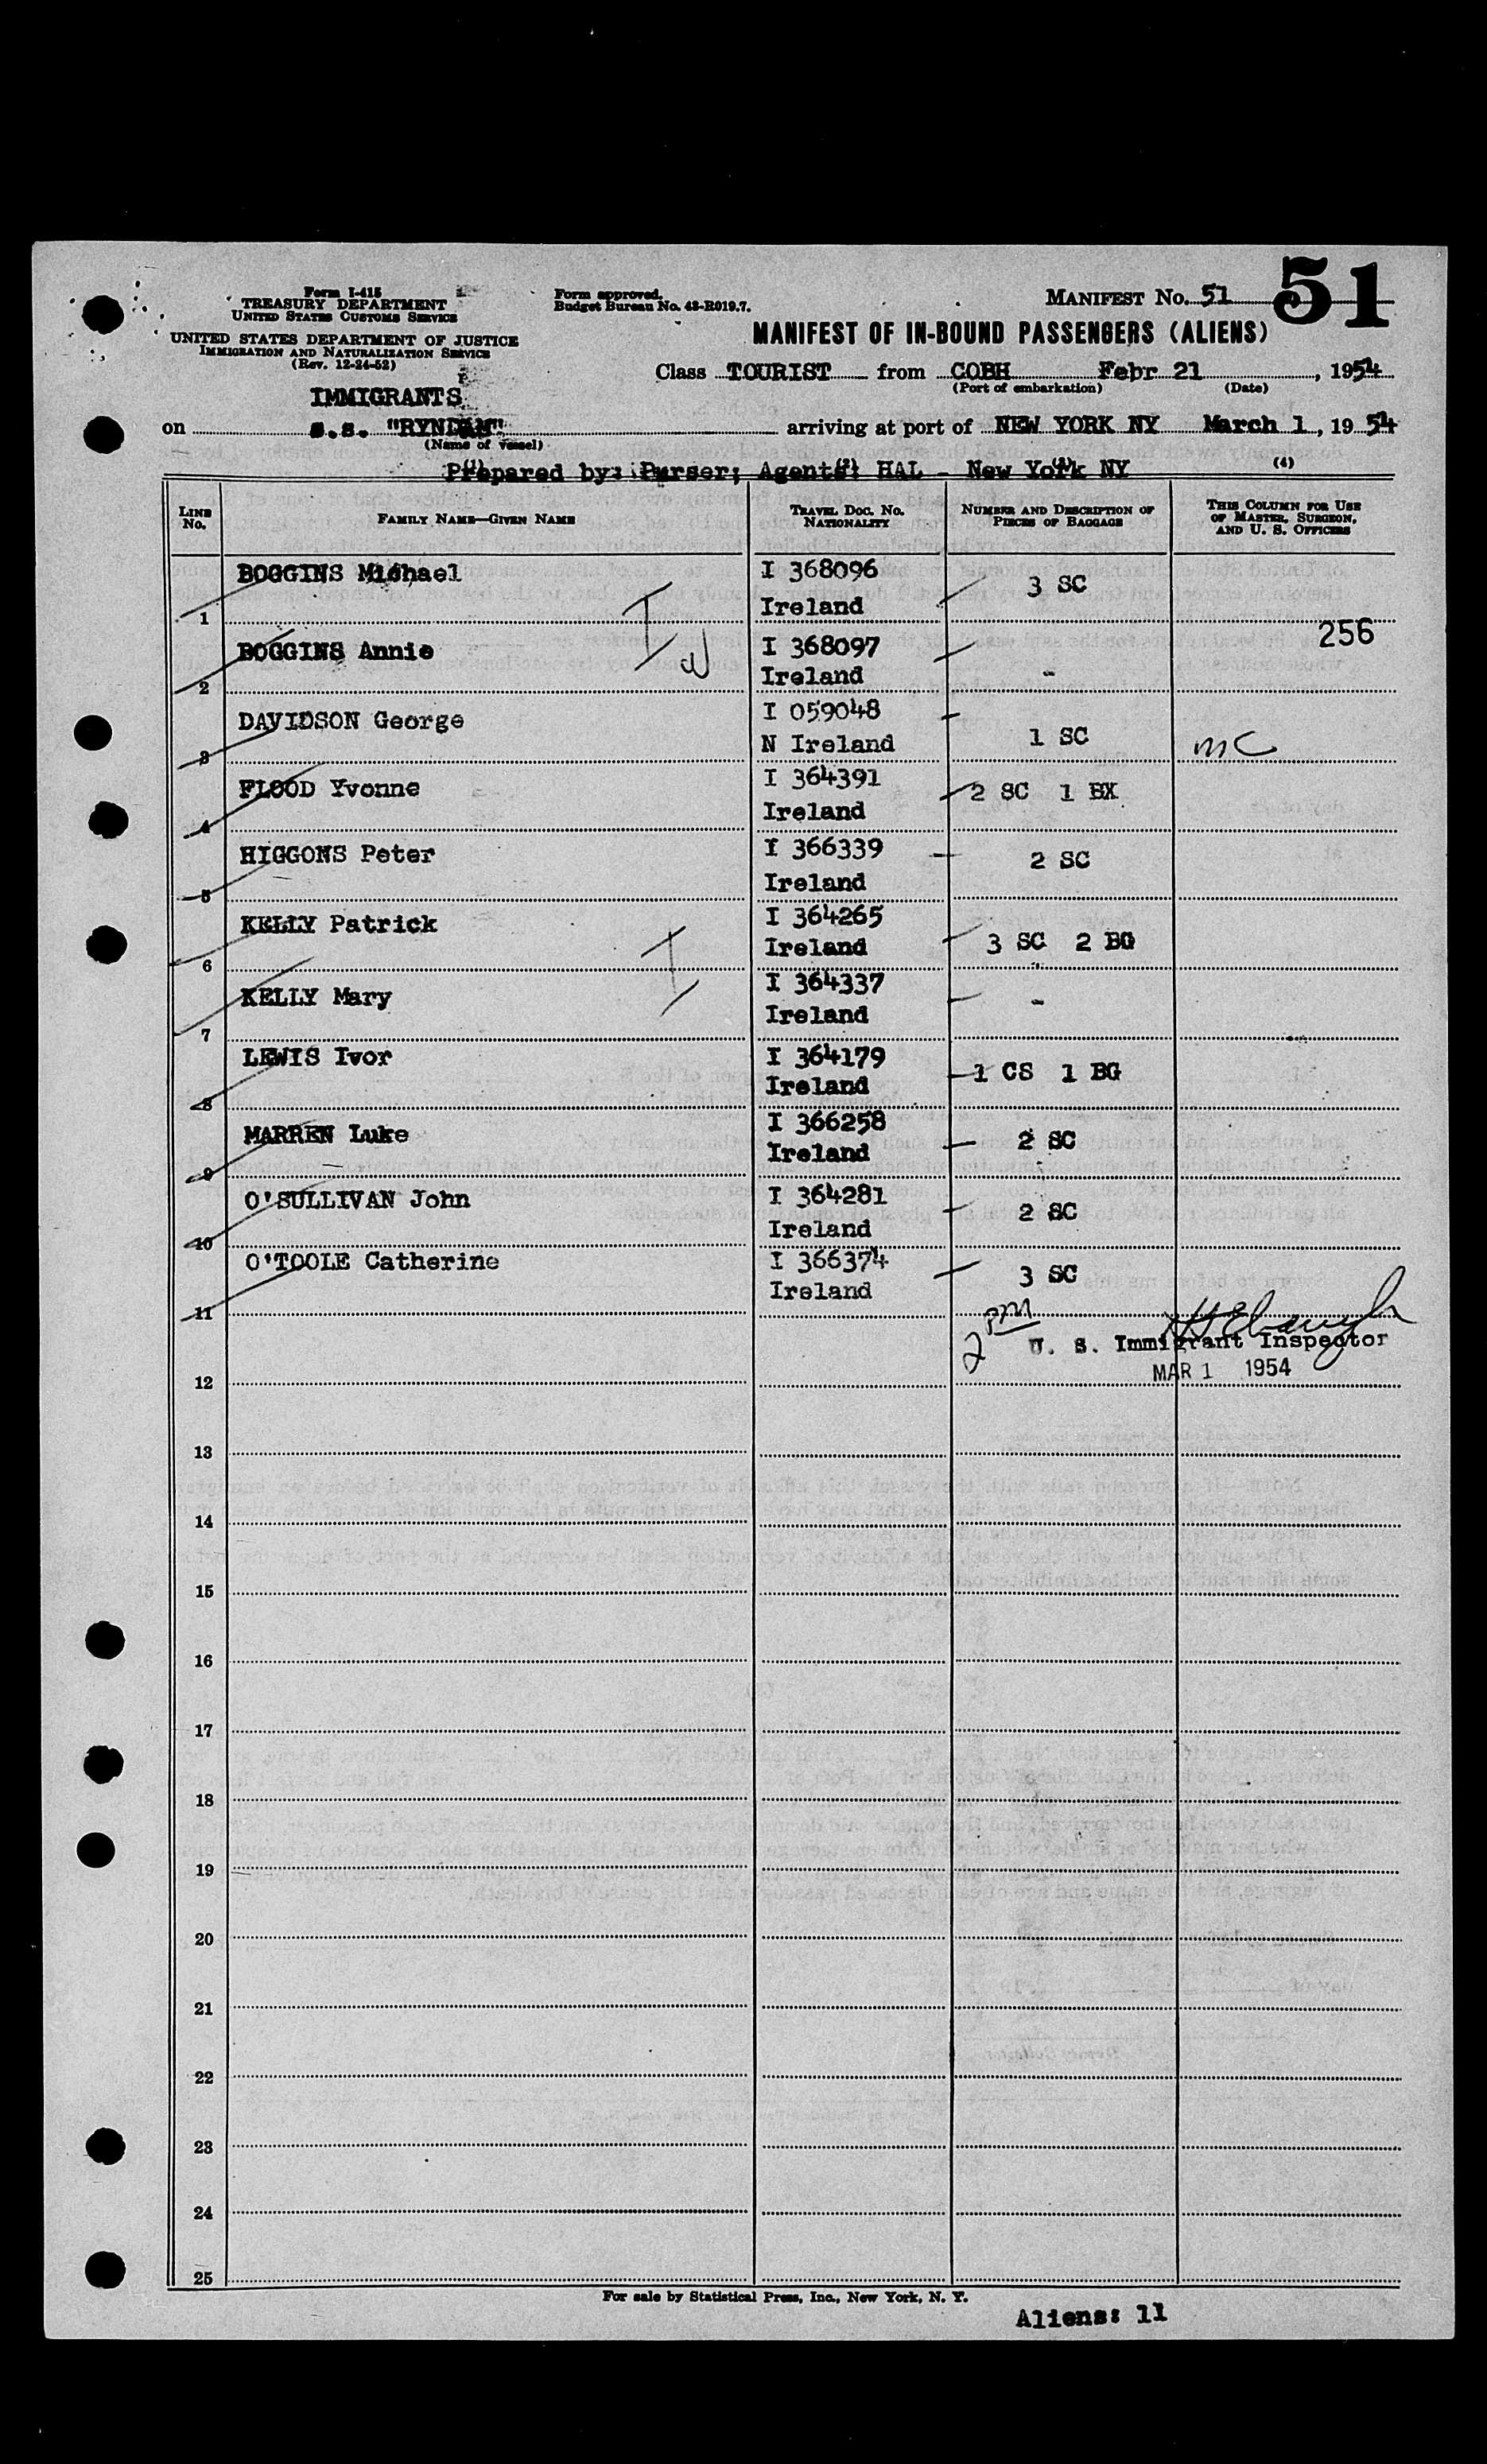 51
Form I-415
TREASURY DEPARTMENT
UNITED STATES CUSTOMS SERVICE
UNITED STATES DEPARTMENT OF JUSTICE
IMMIGRATION AND NATURALIZATION SERVICE
(Rev. 12-24-52)
Form approved.
Budget Bureau No. 43-R019.7.
MANIFEST No. 51
MANIFEST OF IN-BOUND PASSENGERS (ALIENS)
Class TOURIST from COBH Febr 21, 1954
(Port of embarkation) (Date)
IMMIGRANTS
on s.s. "RYNDAM" arriving at port of NEW YORK NY March 1, 1954
(Name of vessel)
Prepared by: Purser; Agents: HAL - New York NY
(1) (2) (3) (4)
LINE No. FAMILY NAME—GIVEN NAME TRAVEL DOC. NO. NATIONALITY NUMBER AND DESCRIPTION OF PIECES OF BAGGAGE THIS COLUMN FOR USE OF MASTER, SURGEON, AND U. S. OFFICERS
BOGGINS Michael I 368096
1 Ireland 3 SC
256
BOGGINS Annie I 368097
2 Ireland -
DAVIDSON George I 059048
3 N Ireland 1 SC mc
FLOOD Yvonne I 364391 2 SC 1 BX
4 Ireland
HIGGONS Peter I 366339 2 SC
5 Ireland
KELLY Patrick I 364265
6 Ireland 3 SC 2 BG
KELLY Mary I 364337 -
7 Ireland
LEWIS Ivor I 364179
8 Ireland 1 CS 1 BG
MARREN Luke I 366258
9 Ireland 2 SC
O'SULLIVAN John I 364281
10 Ireland 2 SC
O'TOOLE Catherine I 366374
11 Ireland 3 SC
2 PM
U. S. Immigrant Inspector
MAR 1 1954
12
13
14
15
16
17
18
19
20
21
22
23
24
25
For sale by Statistical Press, Inc., New York, N. Y.
Aliens: 11